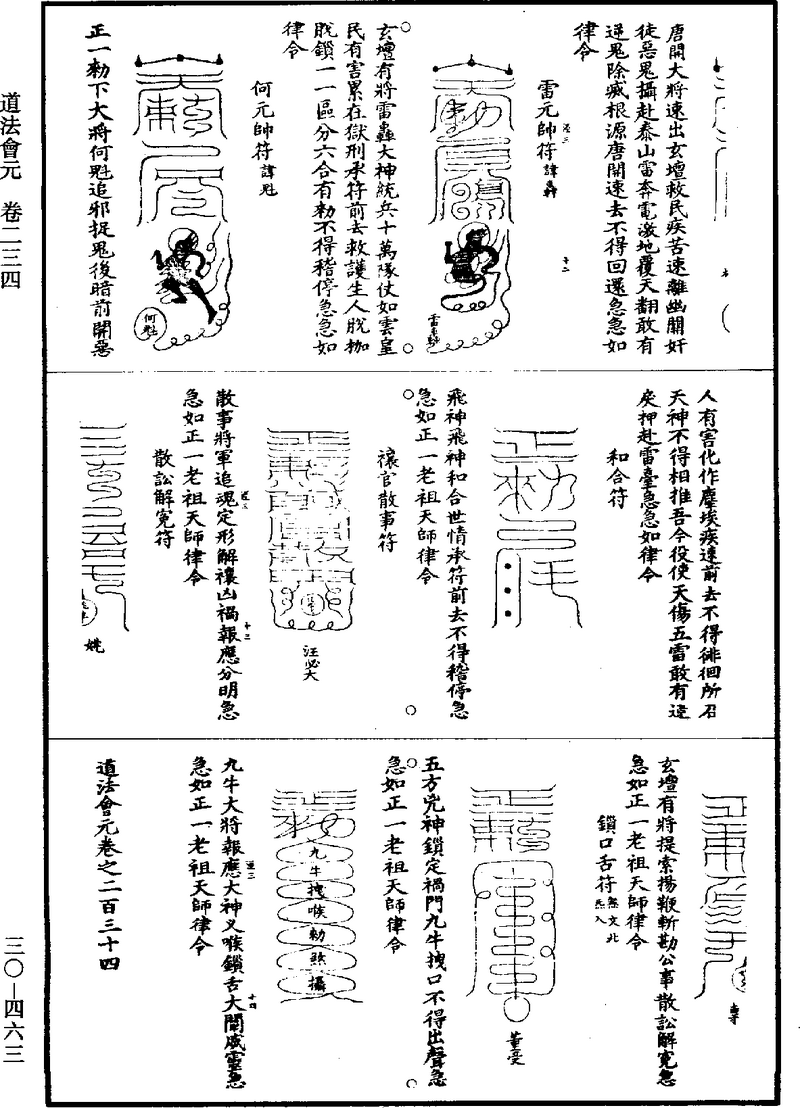 唐開大將速出玄壇救民疾苦速離幽關奸
徒惡鬼攝赴泰山雷奔電激地覆天翻敢有
逆鬼除滅根源唐開速去不得回還急急如
律令
雷元帥符
玄壇有將雷轟大神統兵十萬隊仗如雲皇
民有害累在獄刑承符前去救護生人脫枷
脫鎖一一區分六合有勅不得稽停急急如
律令
何元帥符 諱魁
何魁
正一勅下大將何魁追邪捉鬼後暗前開惡
人有害化作塵埃疾速前去不得徘徊所召
天神不得相推吾今役使天傷五雷敢有違
戾押赴雷臺急急如律令
和合符
飛神飛神和合世情承符前去不得稽停急
急如正一老祖天師律令
禳官散事符
汪必大
散事將軍追魂定形解禳凶禍報應分明急
急如正一老祖天師律令
散訟解冤符
姚
玄壇有將提索揚鞭斬勘公事散訟解冤急
急如正一老祖天師律令
鎖口舌符
五方兇神鎖定禍門九牛拽口不得出聲急
急如正一老祖天師律令
九牛拽喉勅煞攝
九牛大將報應大神叉喉鎖舌大闡威靈急
急如正一老祖天師律令
道法會元卷之二百三十四
道法會元 卷二三四
三〇—四六三